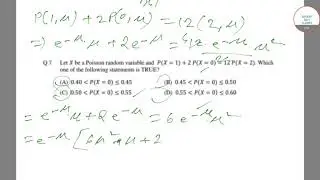 P(1,μ) + 2P(0,μ) = 12(2,μ)
=> e^-μ μ + 2e^-μ = 12 e^-μ μ²
Q.7 Let X be a Poisson random variable and P(X = 1) + 2 P(X = 0) = 12 P(X = 2). Which
one of the following statements is TRUE?
(A) 0.40 < P(X = 0) ≤ 0.45 (B) 0.45 < P(X = 0) ≤ 0.50
(C) 0.50 < P(X = 0) ≤ 0.55 (D) 0.55 < P(X = 0) ≤ 0.60
= e^-μ μ + 2e^-μ = 6e^-μ μ²
= e^-μ [6μ² μ + 2